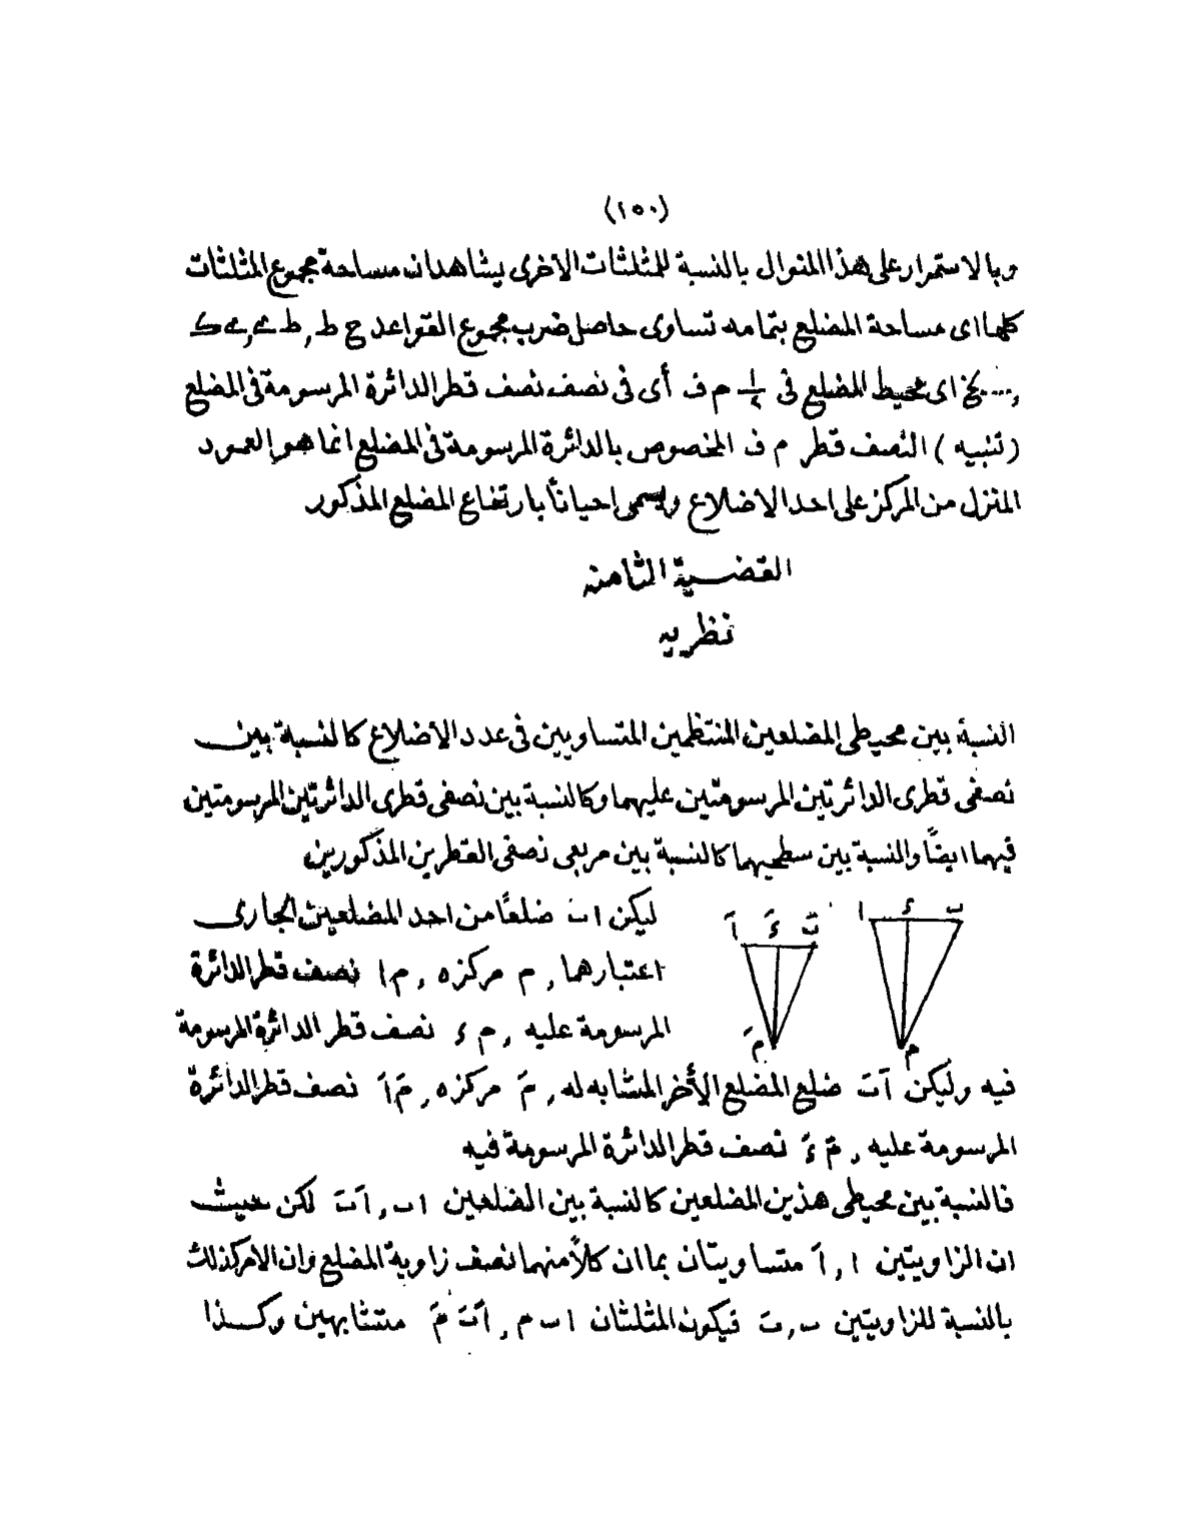 (١٥٠)
وبالاستمرار على هذا المنوال بالنسبة للمثلثات الاخرى يشاهد ان مساحة مجموع المثلثات
كلها اى مساحة المضلع بتمامه تساوى حاصل ضرب مجموع القواعد ح ط , ط ى , ى ك
, .... الخ اى محيط المضلع فى ١/٢ م ف أى فى نصف نصف قطر الدائرة المرسومة فى المضلع
(تنبيه) النصف قطر م ف المخصوص بالدائرة المرسومة فى المضلع انما هو العمود
المنزل من المركز على احد الاضلاع ويسمى احياناً بارتفاع المضلع المذكور
القضية الثامنه
نظريه
النسبة بين محيطى المضلعين المنتظمين المتساويين فى عدد الأضلاع كالنسبة بين
نصفى قطرى الدائرتين المرسومتين عليهما وكالنسبة بين نصفى قطرى الدائرتين المرسومتين
فيهما ايضاً والنسبة بين سطحيهما كالنسبة بين مربعى نصفى القطرين المذكورين
ا ء ب
اَ ءَ بَ
ليكن اب ضلعاً من احد المضلعين الجارى
اعتبارهما , م مركزه , م ا نصف قطر الدائرة
المرسومة عليه , م ء نصف قطر الدائرة المرسومة
مَ م
فيه وليكن اَبَ ضلع المضلع الأخر المشابه له , مَ مركزه , مَ اَ نصف قطر الدائرة
المرسومة عليه , مَ ءَ نصف قطر الدائرة المرسومة فيه
فالنسبة بين محيطى هذين المضلعين كالنسبة بين الضلعين اب , اَبَ لكن حيث
ان الزاويتين ا , اَ متساويتان بما ان كلاً منهما نصف زاوية المضلع وان الامر كذلك
بالنسبة للزاويتين ب , بَ فيكون المثلثان ا ب م , اَبَ مَ متشابهين وكذا